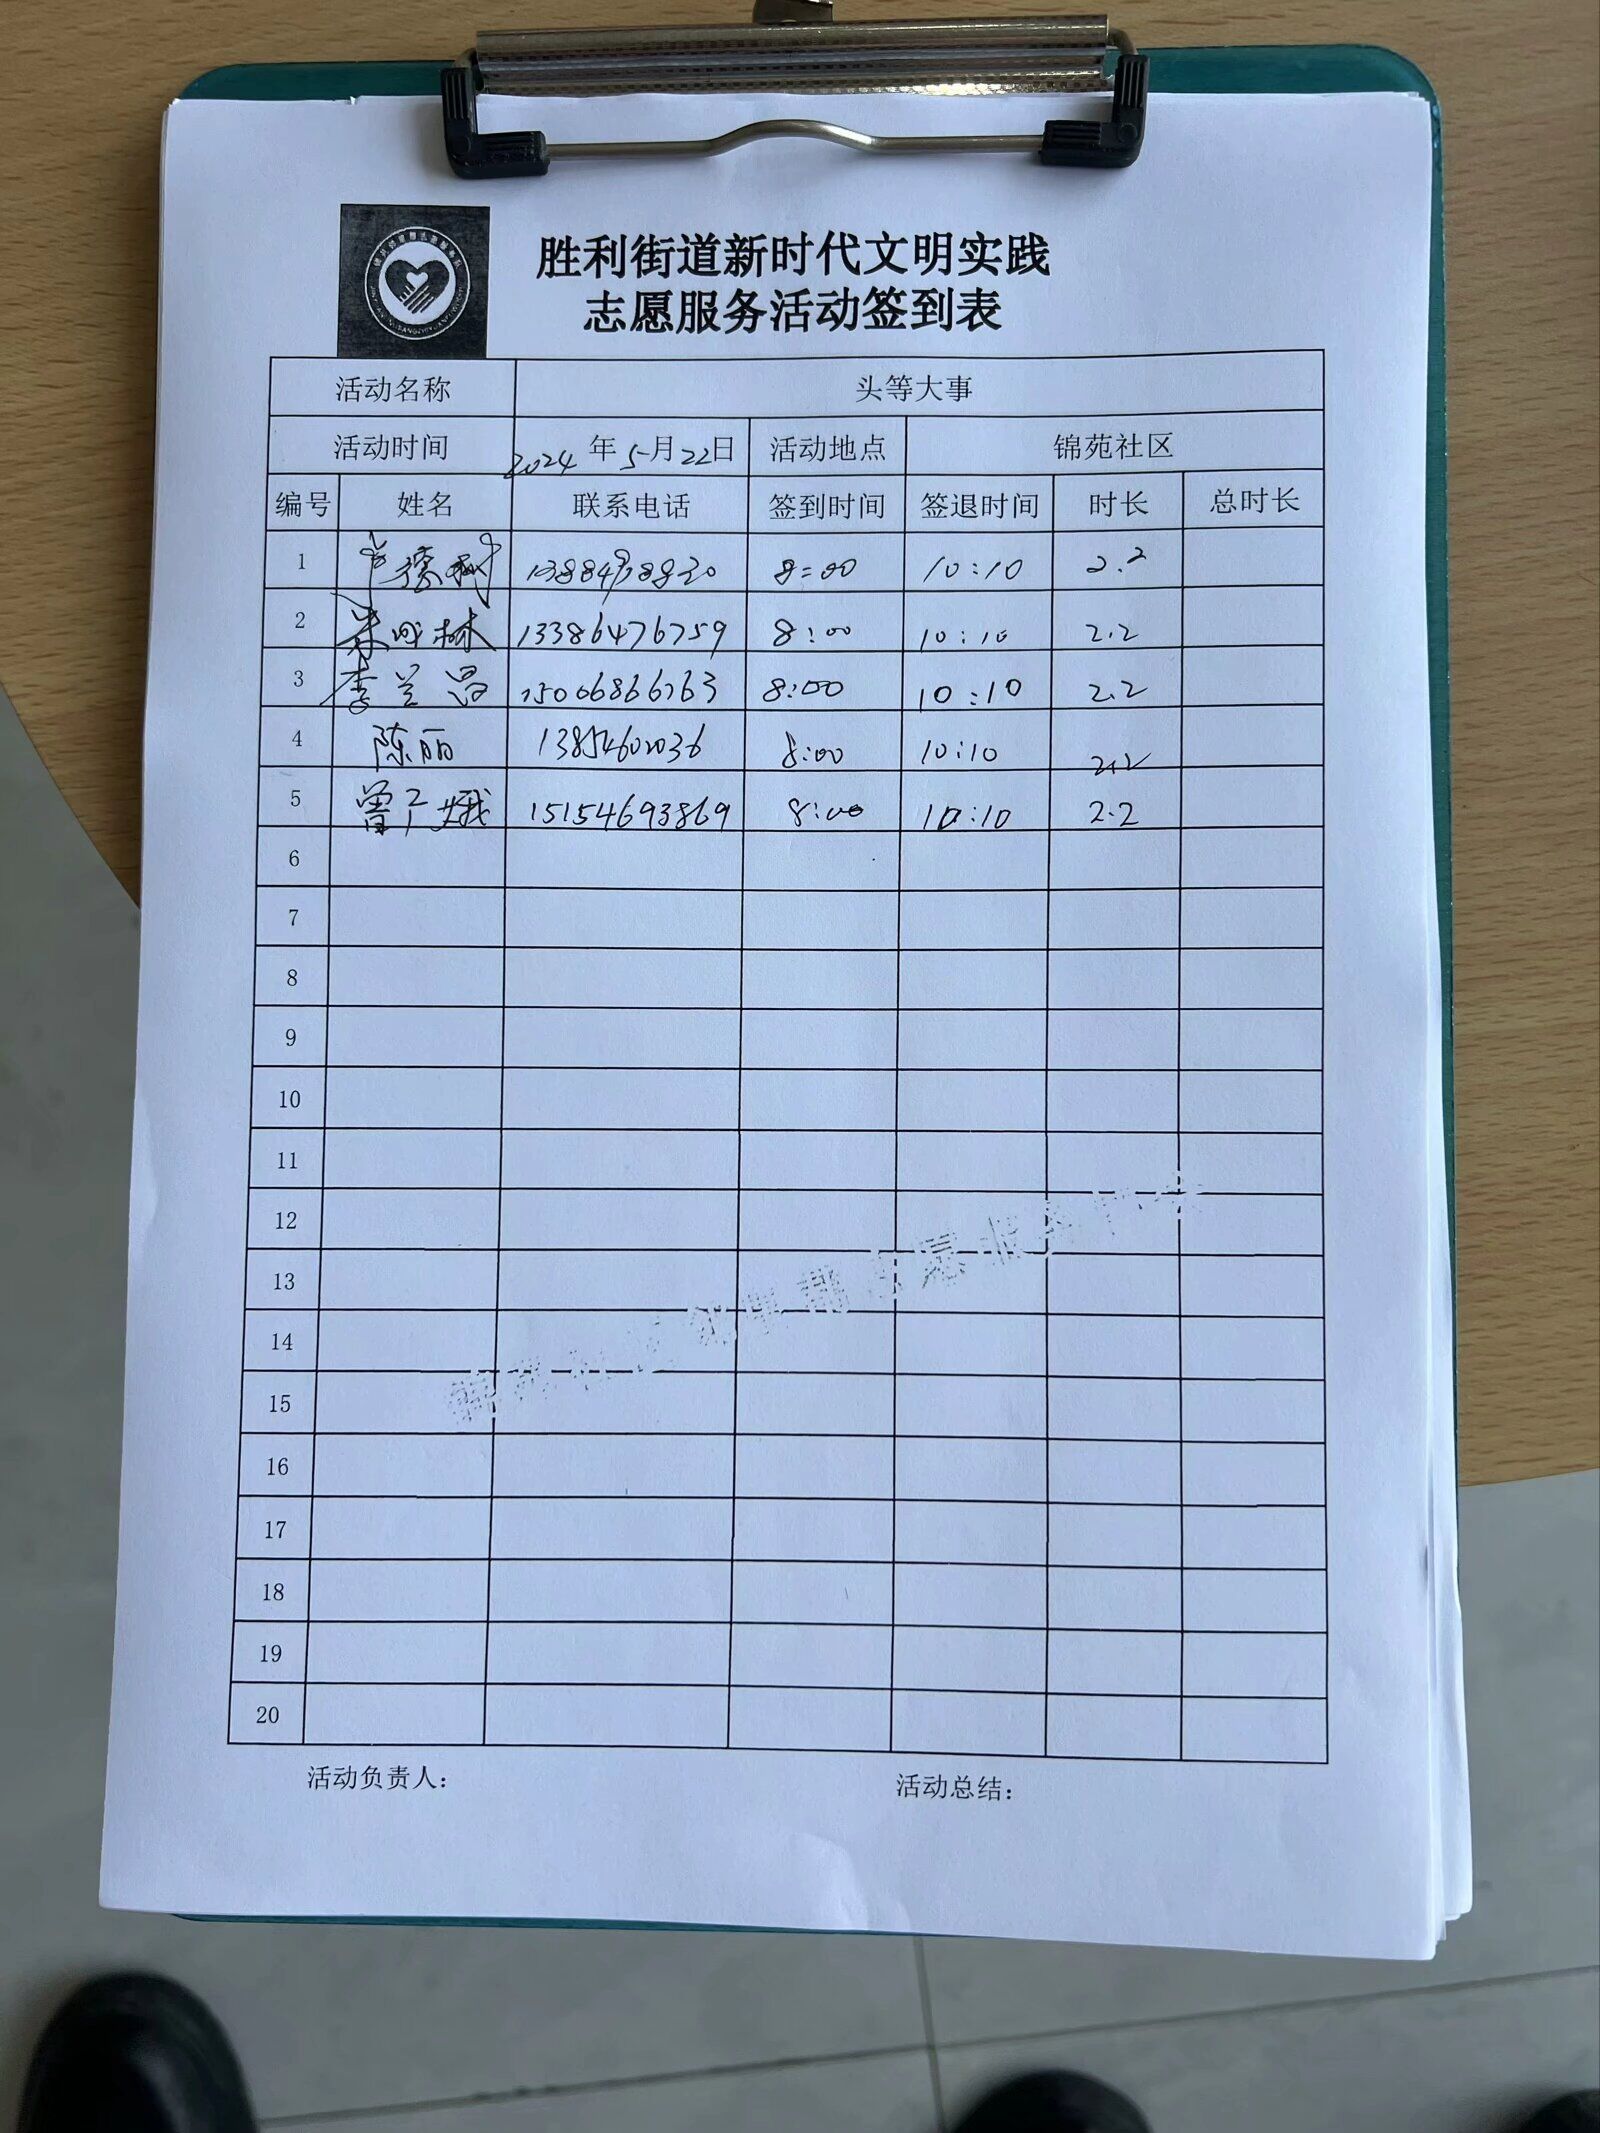 胜利街道新时代文明实践
志愿服务活动签到表
活动名称 头等大事
活动时间 2024年5月22日 活动地点 锦苑社区
编号 姓名 联系电话 签到时间 签退时间 时长 总时长
1 8:00 10:10 2.2
2 13386476759 8:00 10:10 2.2
3 李兰昌 15006866763 8:00 10:10 2.2
4 陈丽 8:00 10:10 2.2
5 15154693869 8:00 10:10 2.2
6
7
8
9
10
11
12
13
14
15
16
17
18
19
20
活动负责人： 活动总结：